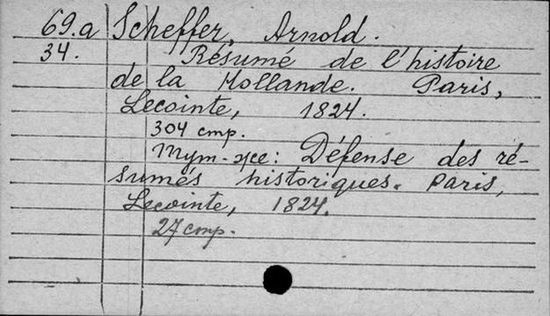 69.a Scheffer, Arnold.
34. Résumé de l'histoire
de la Hollande. Paris,
Lecointe, 1824.
304 стр.
Тут-же: Défense des ré-
sumés historiques. Paris,
Lecointe, 1824.
27 стр.